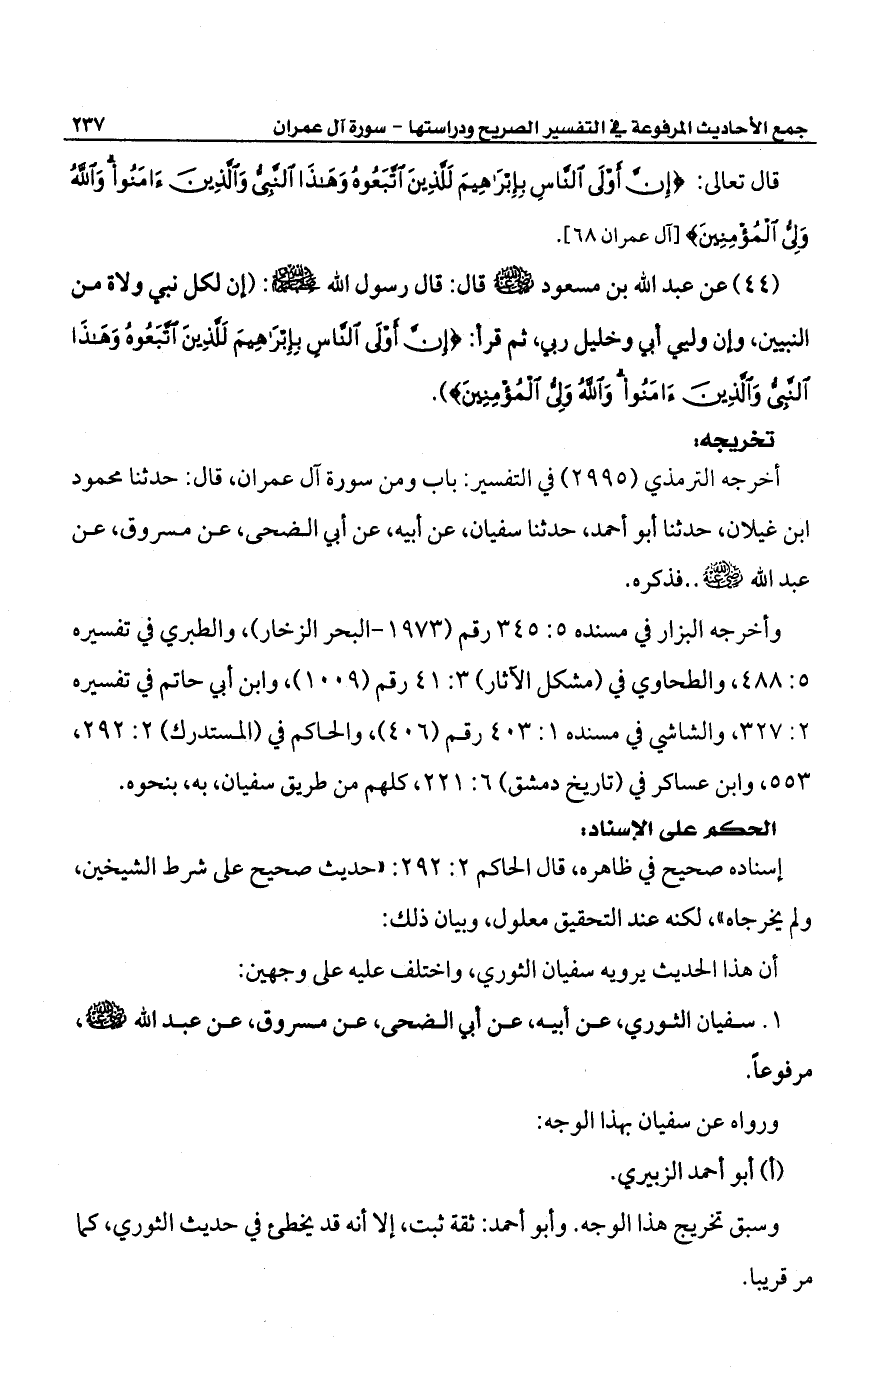 جمع الأحاديث المرفوعة في التفسير الصريح ودراستها - سورة آل عمران ٢٣٧
قال تعالى: ﴿إِنَّ أَوْلَى ٱلنَّاسِ بِإِبْرَٰهِيمَ لَلَّذِينَ ٱتَّبَعُوهُ وَهَٰذَا ٱلنَّبِىُّ وَٱلَّذِينَ ءَامَنُوا۟ ۗ وَٱللَّهُ
وَلِىُّ ٱلْمُؤْمِنِينَ﴾ [آل عمران ٦٨].
(٤٤) عن عبد الله بن مسعود ﵁ قال: قال رسول الله ﷺ: (إن لكل نبي ولاة من
النبيين، وإن وليي أبي وخليل ربي، ثم قرأ: ﴿إِنَّ أَوْلَى ٱلنَّاسِ بِإِبْرَٰهِيمَ لَلَّذِينَ ٱتَّبَعُوهُ وَهَٰذَا
ٱلنَّبِىُّ وَٱلَّذِينَ ءَامَنُوا۟ ۗ وَٱللَّهُ وَلِىُّ ٱلْمُؤْمِنِينَ﴾).
تخريجه:
أخرجه الترمذي (٢٩٩٥) في التفسير: باب ومن سورة آل عمران، قال: حدثنا محمود
ابن غيلان، حدثنا أبو أحمد، حدثنا سفيان، عن أبيه، عن أبي الضحى، عن مسروق، عن
عبد الله ﵁..فذكره.
وأخرجه البزار في مسنده ٥: ٣٤٥ رقم (١٩٧٣-البحر الزخار)، والطبري في تفسيره
٥: ٤٨٨، والطحاوي في (مشكل الآثار) ٣: ٤١ رقم (١٠٠٩)، وابن أبي حاتم في تفسيره
٢: ٣٢٧، والشاشي في مسنده ١: ٤٠٣ رقم (٤٠٦)، والحاكم في (المستدرك) ٢: ٢٩٢،
٥٥٣، وابن عساكر في (تاريخ دمشق) ٦: ٢٢١، كلهم من طريق سفيان، به، بنحوه.
الحكم على الإسناد:
إسناده صحيح في ظاهره، قال الحاكم ٢: ٢٩٢: «حديث صحيح على شرط الشيخين،
ولم يخرجاه»، لكنه عند التحقيق معلول، وبيان ذلك:
أن هذا الحديث يرويه سفيان الثوري، واختلف عليه على وجهين:
١. سفيان الثوري، عن أبيه، عن أبي الضحى، عن مسروق، عن عبد الله ﵁،
مرفوعاً.
ورواه عن سفيان بهذا الوجه:
(أ) أبو أحمد الزبيري.
وسبق تخريج هذا الوجه. وأبو أحمد: ثقة ثبت، إلا أنه قد يخطئ في حديث الثوري، كما
مر قريبا.